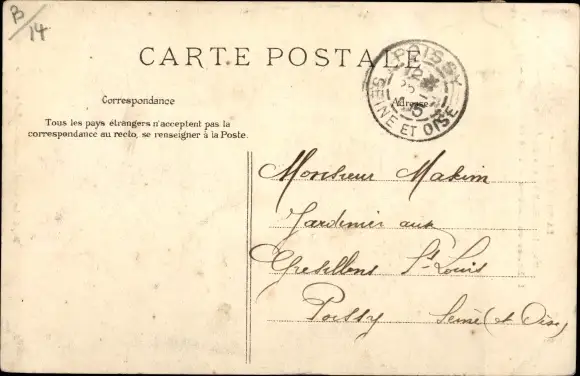 B/14
CARTE POSTALE
POISSY
SEINE ET OISE
Correspondance
Adresse
Tous les pays étrangers n'acceptent pas la
correspondance au recto, se renseigner à la Poste.
Monsieur Makim
Jardinier aux
Gresillons St Louis
Poissy Seine (et Oise)